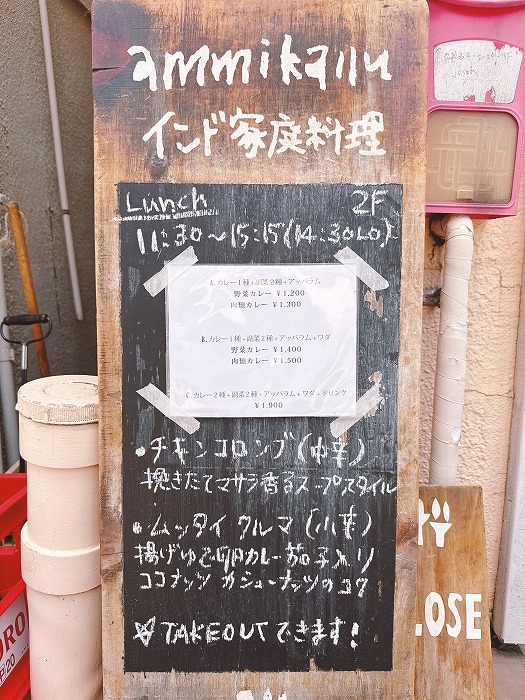 ammikallu
インド家庭料理
Lunch 2F
11:30〜15:15(14:30LO)
A.カレー1種+副菜2種+アッパラム
野菜カレー ¥1,200
肉類カレー ¥1,300
B.カレー1種+副菜2種+アッパラム+ワダ
野菜カレー ¥1,400
肉類カレー ¥1,500
C.カレー2種+副菜2種+アッパラム+ワダ+ドリンク
¥1,900
•チキンコロンブ(中辛)
挽きたてマサラ香るスープスタイル
•ムッタイ クルマ(小辛)
揚げゆで卵カレー茄子入り
ココナッツ カシューナッツのコク
☆TAKEOUTできます!
LOSE